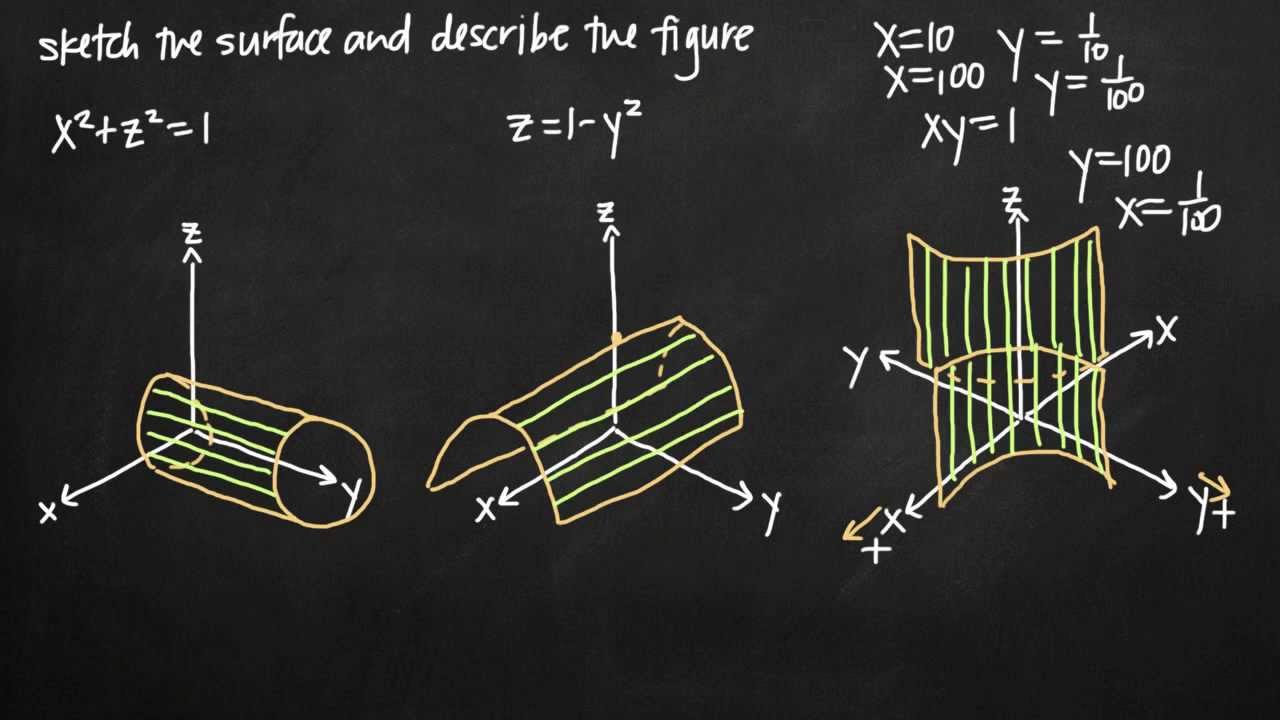 sketch the surface and describe the figure
x²+z²=1
z=1-y²
x=10 y=1/10
x=100 y=1/100
xy=1
y=100
x=1/100
z
x
y
z
x
y
z
y
x
x
+
y+